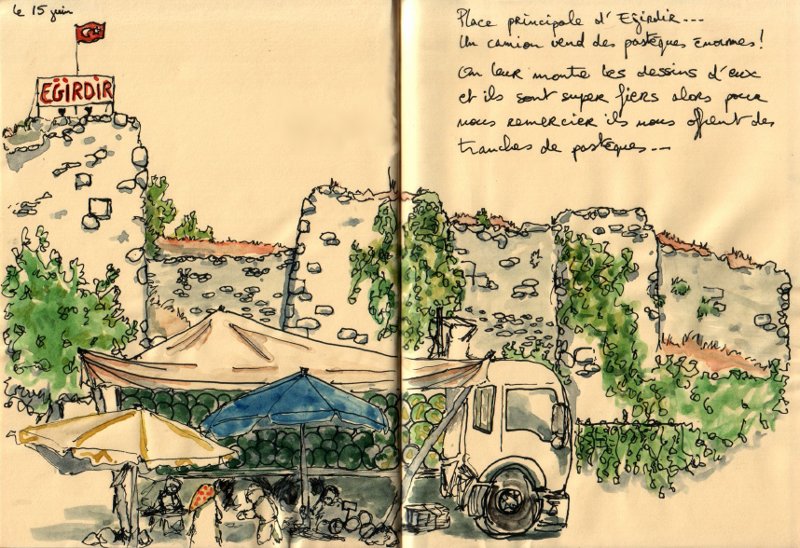 le 15 juin
EĞİRDİR
Place principale d'Eğirdir...
Un camion vend des pastèques énormes !
On leur montre les dessins d'eux
et ils sont super fiers alors pour
nous remercier ils nous offrent des
tranches de pastèques...